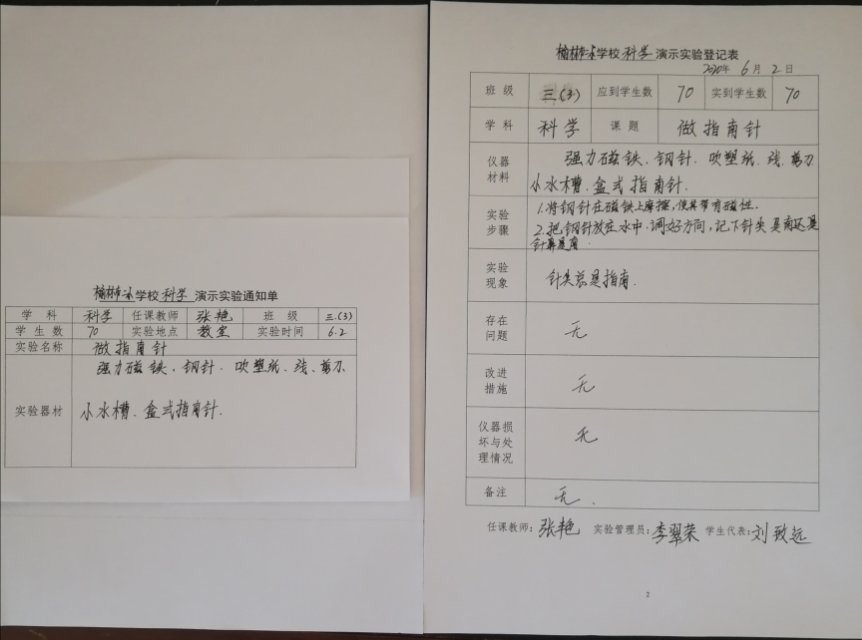 学校科学演示实验通知单
学科 科学 任课教师 张艳 班级 三.(3)
学生数 70 实验地点 教室 实验时间 6.2
实验名称 做指南针
强力磁铁、钢针、吹塑纸、线、剪刀
实验器材 小水槽、盒式指南针.
学校科学演示实验登记表
2020年 6月 2日
班级 三(3) 应到学生数 70 实到学生数 70
学科 科学 课题 做指南针
仪器材料 强力磁铁、钢针、吹塑纸、线、剪刀
小水槽、盒式指南针.
实验步骤 1.将钢针在磁铁上摩擦,使其带有磁性.
2.把钢针放在水中.调好方向,记下针尖是南还是
针鼻是南.
实验现象 针尖总是指南.
存在问题 无
改进措施 无
仪器损坏与处理情况 无
备注 无.
任课教师:张艳 实验管理员:李翠荣 学生代表:刘致远
2